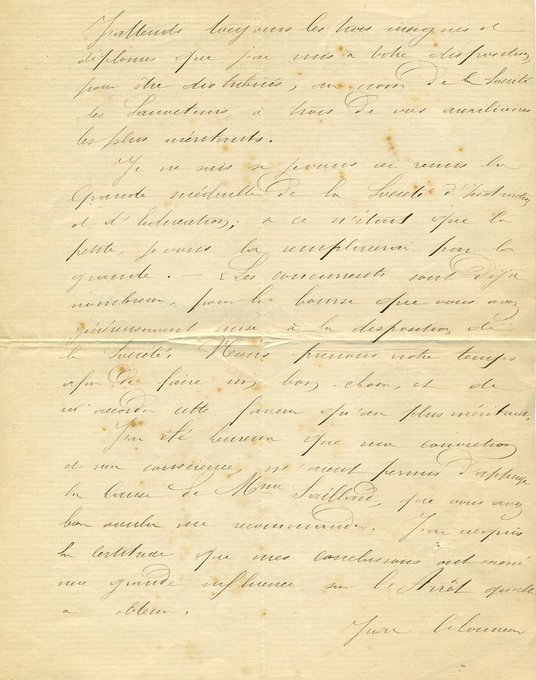 J'attends toujours les trois insignes et
diplômes que j'ai mis à votre disposition
pour être distribués, au nom de la Société
des Sauveteurs, à trois de vos auxiliaires
les plus méritants.
Je ne sais si je vous ai remis la
Grande médaille de la Société d'Instruction
et d'Education; si ce n'était que la
petite, je vous la remplacerai par la
grande. — Les concurrents sont déjà
nombreux pour la bourse que vous avez
généreusement mise à la disposition de
la Société. Nous prenons notre temps
afin de faire un bon choix, et de
n'accorder cette faveur qu'au plus méritant.
J'ai été heureux que ma conviction
et ma conscience m'aient permis d'appuyer
la cause de Mme Saillard, que vous avez
bien voulu me recommander. J'ai acquis
la certitude que mes conclusions ont exercé
une grande influence sur l'Arrêt qu'elle
a obtenu.
J'ai l'honneur